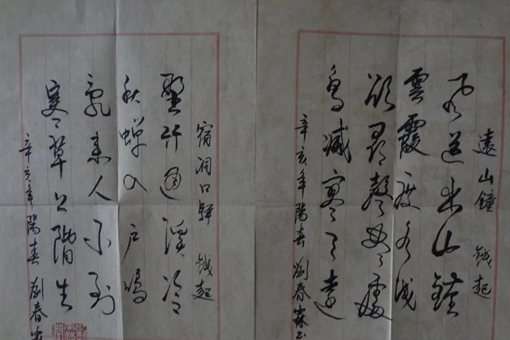 遠山鐘 錢起
風送出山鐘
雲霞度水淺
欲尋聲盡處
鳥滅寥天遠
辛亥年陽春 劉春霖書
宿洞口驛 錢起
野竹通溪冷
秋蟬入戶鳴
亂來人不到
寒草上階生
辛亥年陽春 劉春霖